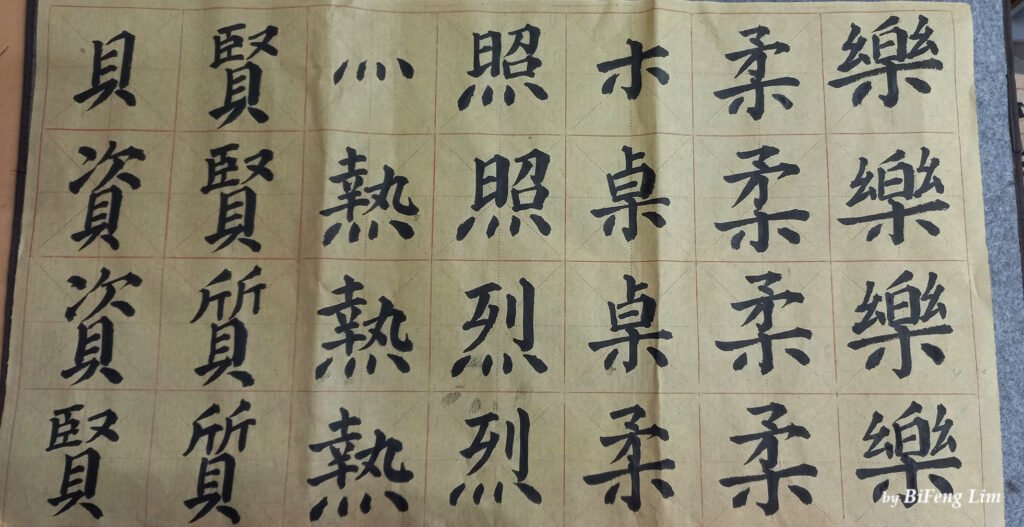 貝資資賢
賢賢質質
灬熱熱熱
照照烈烈
朩桌桌柔
柔柔柔柔
樂樂樂樂
by BiFeng Lim